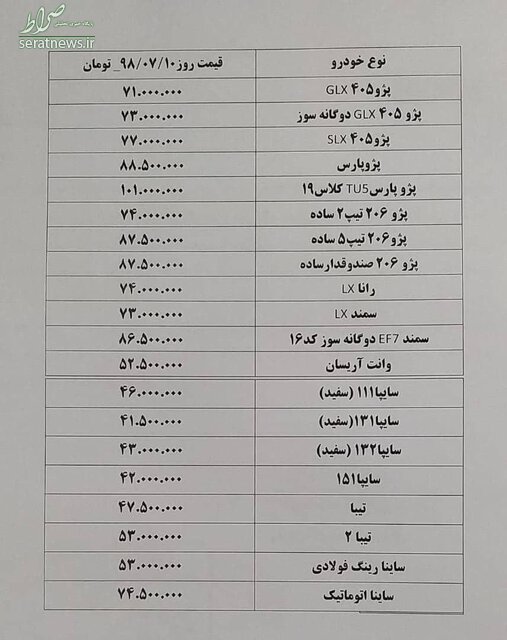 صراط
پایگاه خبری تحلیلی
seratnews.ir
نوع خودرو قیمت روز ۹۸/۰۷/۱۰_ تومان
پژو۴۰۵ GLX ۷۱.۰۰۰.۰۰۰
پژو ۴۰۵ GLX دوگانه سوز ۷۳.۰۰۰.۰۰۰
پژو۴۰۵ SLX ۷۷.۰۰۰.۰۰۰
پژوپارس ۸۸.۵۰۰.۰۰۰
پژو پارسTU5 کلاس۱۹ ۱۰۱.۰۰۰.۰۰۰
پژو ۲۰۶ تیپ۲ ساده ۷۴.۰۰۰.۰۰۰
پژو۲۰۶ تیپ۵ ساده ۸۷.۵۰۰.۰۰۰
پژو ۲۰۶ صندوقدارساده ۸۷.۵۰۰.۰۰۰
رانا LX ۷۴.۰۰۰.۰۰۰
سمند LX ۷۳.۰۰۰.۰۰۰
سمند EF7 دوگانه سوز کد۱۶ ۸۶.۵۰۰.۰۰۰
وانت آریسان ۵۲.۵۰۰.۰۰۰
سایپا۱۱۱ (سفید) ۴۶.۰۰۰.۰۰۰
سایپا۱۳۱(سفید) ۴۱.۵۰۰.۰۰۰
سایپا۱۳۲ (سفید) ۴۳.۰۰۰.۰۰۰
سایپا۱۵۱ ۴۲.۰۰۰.۰۰۰
تیبا ۴۷.۵۰۰.۰۰۰
تیبا ۲ ۵۳.۰۰۰.۰۰۰
ساینا رینگ فولادی ۵۳.۰۰۰.۰۰۰
ساینا اتوماتیک ۷۴.۵۰۰.۰۰۰